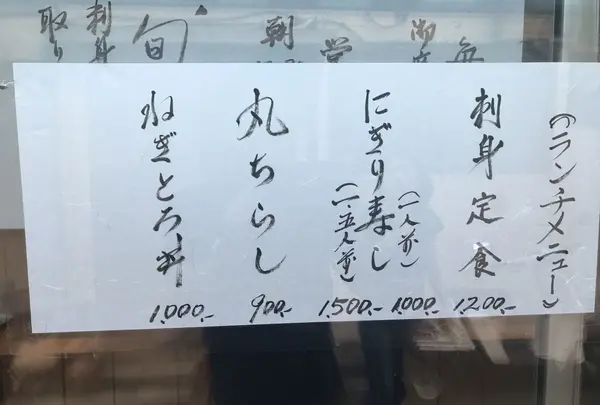 (ランチメニュー)
刺身定食 1,200.-
にぎり寿し
(一人前) 1,000.-
(一.五人前) 1,500.-
丸ちらし 900.-
ねぎとろ丼 1,000.-
朝
旬
刺身
取り